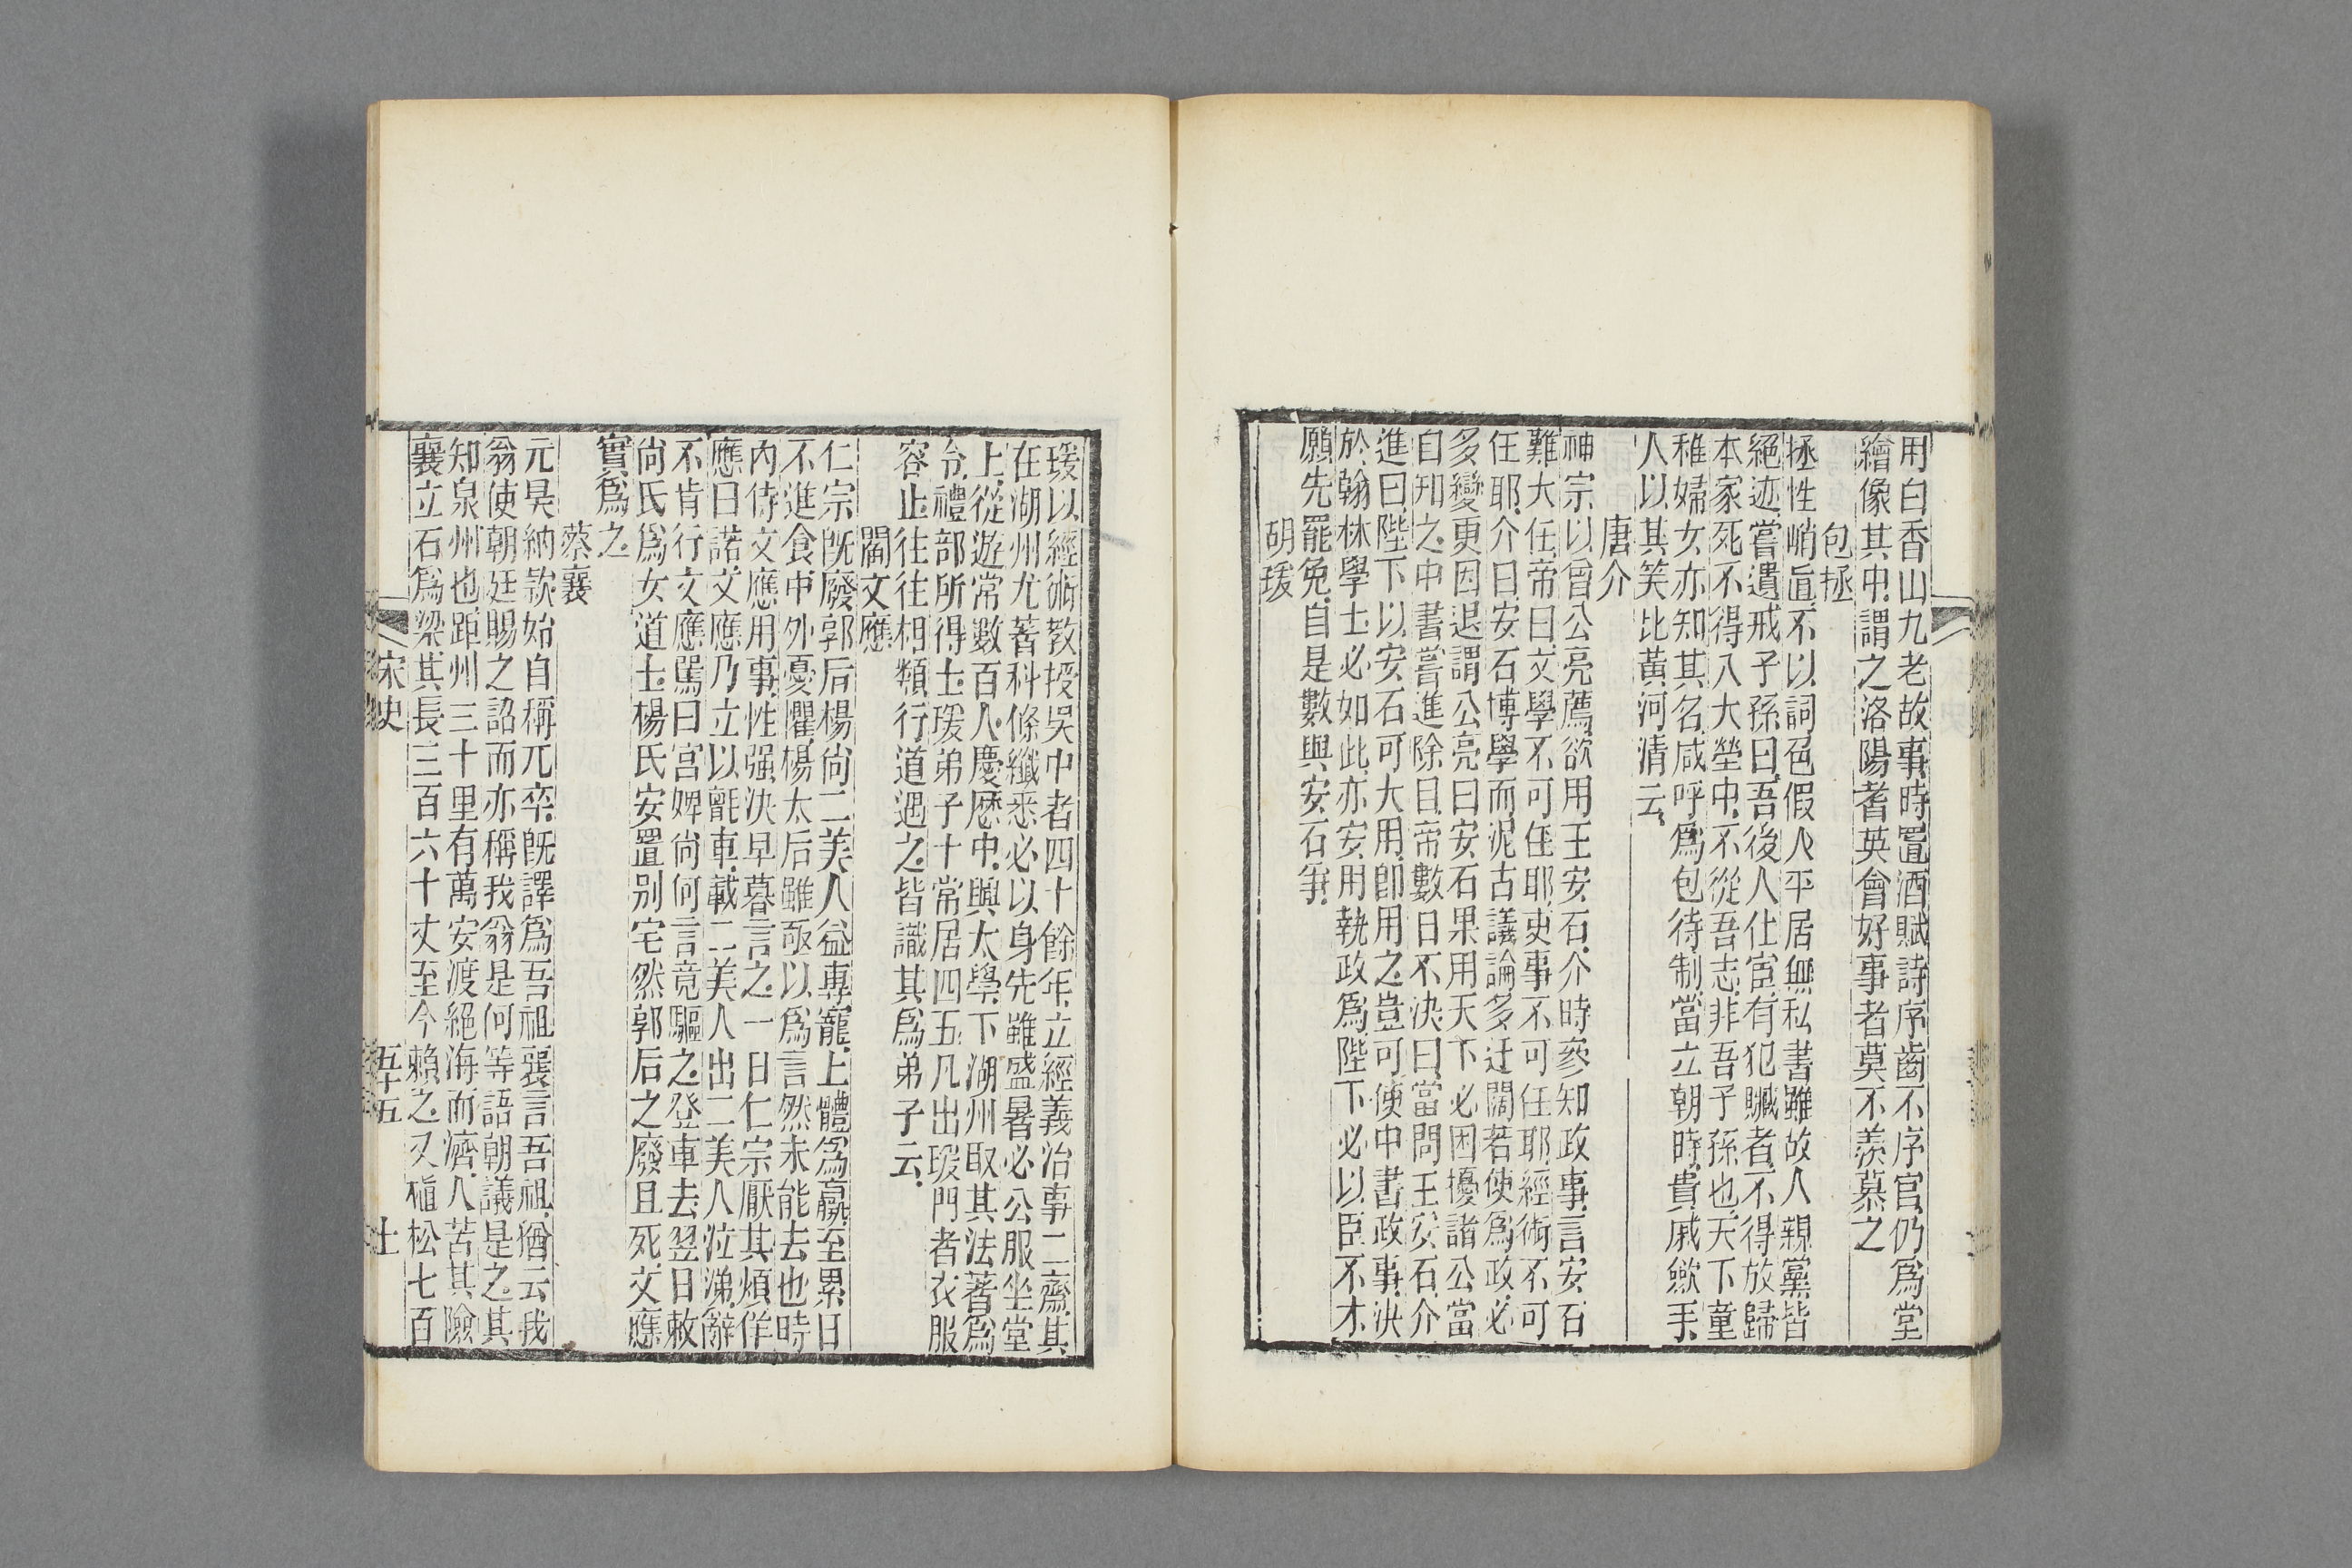 用白香山九老故事時置酒賦詩序齒不序官仍爲堂
繪像其中謂之洛陽耆英會好事者莫不羨慕之
包拯
拯性峭直不以詞色假人平居無私書雖故人親黨皆
絕迹嘗遺戒子孫曰吾後人仕宦有犯贓者不得放歸
本家死不得入大塋中不從吾志非吾子孫也天下童
稚婦女亦知其名咸呼爲包待制當立朝時貴戚歛手
人以其笑比黃河清云
唐介
神宗以曾公亮薦欲用王安石介時叅知政事言安石
難大任帝曰文學不可任耶吏事不可任耶經術不可
任耶介曰安石博學而泥古議論多迂闊若使爲政必
多變更因退謂公亮曰安石果用天下必困擾諸公當
自知之中書嘗進除目帝數日不決曰當問王安石介
進曰陛下以安石可大用卽用之豈可使中書政事決
於翰林學士必如此亦安用執政爲陛下必以臣不才
願先罷免自是數與安石爭
胡瑗
瑗以經術教授吳中者四十餘年立經義治事二齋其
在湖州尤著科條纖悉必以身先雖盛暑必公服坐堂
上從遊常數百人慶歷中興太學下湖州取其法著爲
令禮部所得士瑗弟子十常居四五凡出瑗門者衣服
容止往往相類行道遇之皆識其爲弟子云
閻文應
仁宗旣廢郭后楊尙二美人益專寵上體爲羸至累日
不進食中外憂懼楊太后雖亟以爲言然未能去也時
內侍文應用事性强決早暮言之一日仁宗厭其煩佯
應曰諾文應乃立以氈車載二美人出二美人泣涕辭
不肯行文應罵曰宮婢尙何言竟驅之登車去翌日敕
尙氏爲女道士楊氏安置別宅然郭后之廢且死文應
實爲之
蔡襄
元昊納款始自稱兀卒旣譯爲吾祖襄言吾祖猶云我
翁使朝廷賜之詔而亦稱我翁是何等語朝議是之其
知泉州也距州三十里有萬安渡絕海而濟人苦其險
襄立石爲梁其長三百六十丈至今賴之又植松七百
宋史 五十五 十一